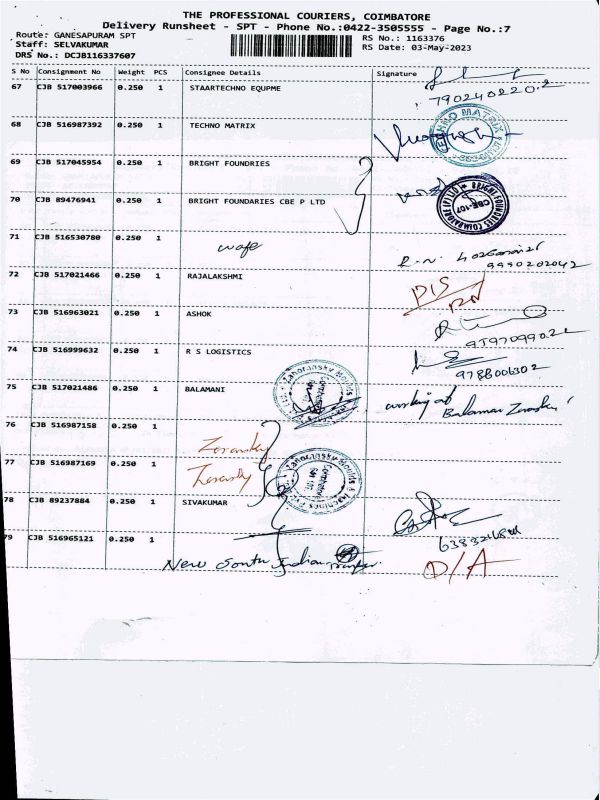 THE PROFESSIONAL COURIERS, COIMBATORE
Delivery Runsheet - SPT - Phone No.:0422-3505555 - Page No.:7
Route: GANESAPURAM SPT
RS No.: 1163376
Staff: SELVAKUMAR
RS Date: 03-May-2023
DRS No.: DCJB116337607
S No Consignment No Weight PCS Consignee Details Signature
67 CJB 517003966 0.250 1 STAARTECHNO EQUPME
7902402202
68 CJB 516987392 0.250 1 TECHNO MATRIX
TECHNO MATRIX
69 CJB 517045954 0.250 1 BRIGHT FOUNDRIES
70 CJB 89476941 0.250 1 BRIGHT FOUNDARIES CBE P LTD
BRIGHT FOUNDRIES COIMBATORE (P) LTD
CBE-107
71 CJB 516530780 0.250 1
9990202042
72 CJB 517021466 0.250 1 RAJALAKSHMI
73 CJB 516963021 0.250 1 ASHOK
74 CJB 516999632 0.250 1 R S LOGISTICS
9788006302
75 CJB 517021486 0.250 1 BALAMANI
working at
76 CJB 516987158 0.250 1
Zoransky
77 CJB 516987169 0.250 1
Zoransky
78 CJB 89237884 0.250 1 SIVAKUMAR
79 CJB 516965121 0.250 1
New South Indian
D/A